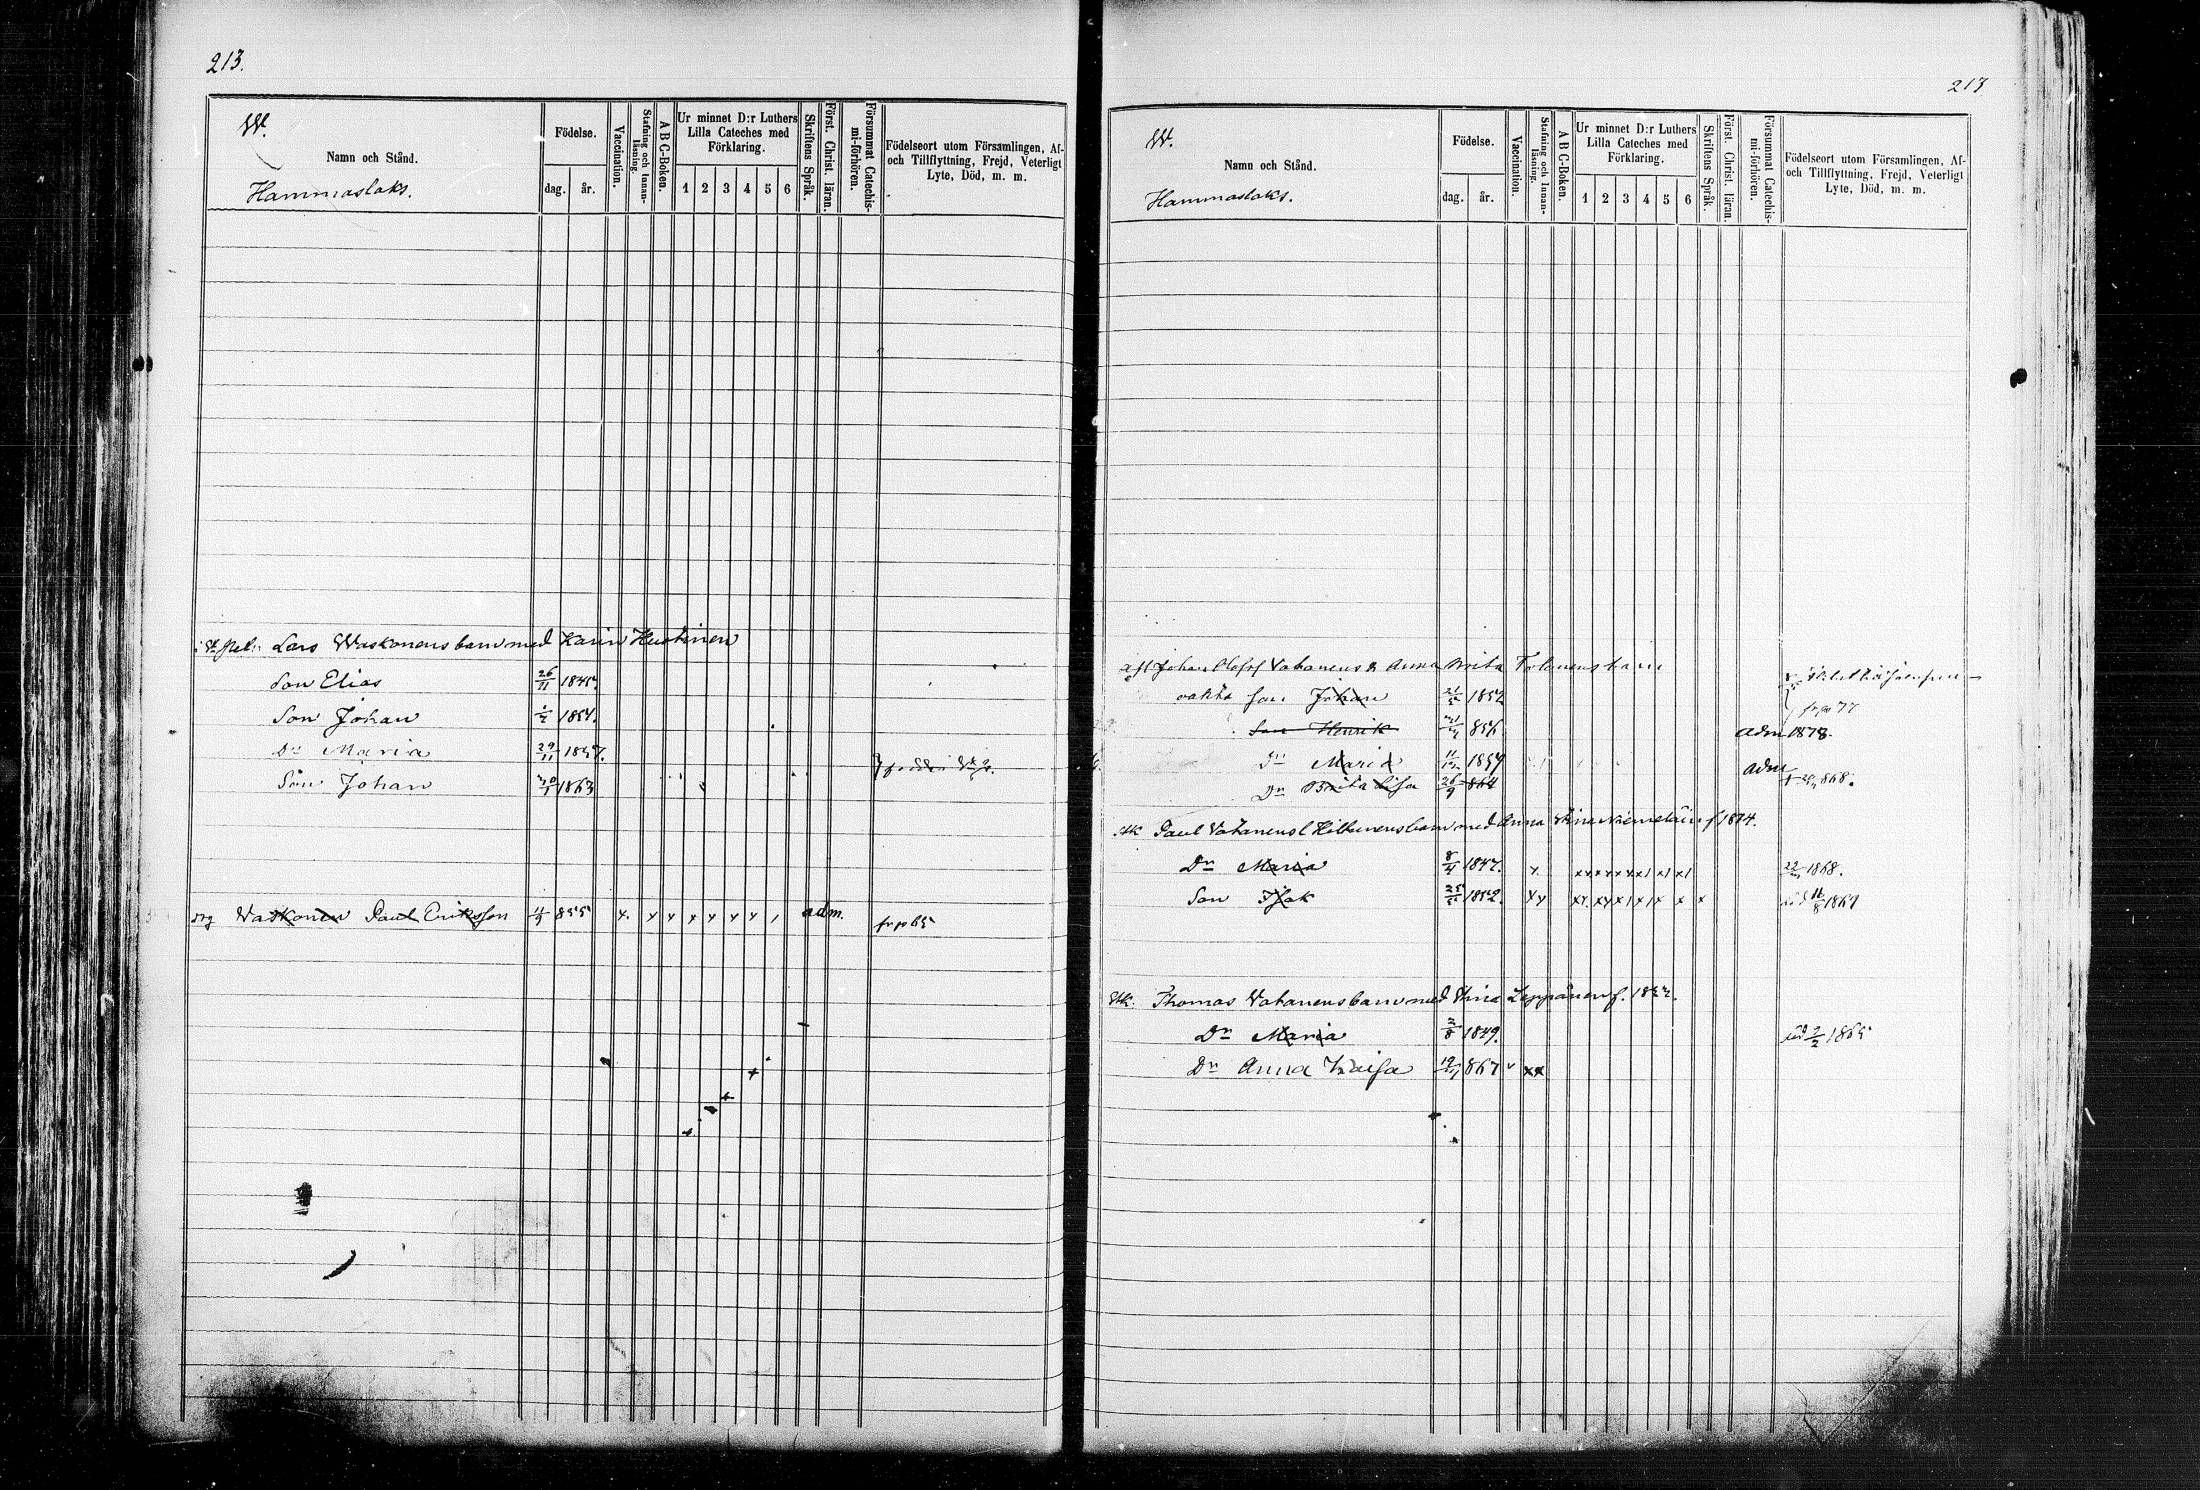 213.
W.
Namn och Stånd.
Hammaslaks.
Födelse.
dag. år.
Vaccination.
Stafning och Innanläsning.
A B C-Boken.
Ur minnet D:r Luthers Lilla Cateches med Förklaring.
1 2 3 4 5 6
Skriftens Språk.
Först. Christ. läran.
Försummat Catechismi-förhören.
Födelseort utom Församlingen, Af- och Tillflyttning, Frejd, Veterligt Lyte, Död, m. m.
Lars Waskonens barn med Karin Huotinen
Son Elias 26/11 1845.
Son Johan 1854.
Dr Maria 29/11 1857.
Son Johan 1863
Waskonen Paul Eriksson 855 x. x x x x x x 1 adm. fr p 65
213
W.
Namn och Stånd.
Hammaslaks.
Födelse.
dag. år.
Vaccination.
Stafning och Innanläsning.
A B C-Boken.
Ur minnet D:r Luthers Lilla Cateches med Förklaring.
1 2 3 4 5 6
Skriftens Språk.
Först. Christ. läran.
Försummat Catechismi-förhören.
Födelseort utom Församlingen, Af- och Tillflyttning, Frejd, Veterligt Lyte, Död, m. m.
Johan Olofs Vatanens & Anna Brita Tolanens barn
oäkta son Johan 1852
fr p 77
Son Henrik 856. adm 1878.
Dr Maria 1859 adm
Dr Brita Lisa 26/9 864 868.
Paul Vatanens barn med Anna Stina 1814.
Dr Maria 8/4 1847. x 1868.
Son Isak 1852. död 16/8 1867
Thomas Vatanens barn med Stina Leppänen f.
Dr Maria 2/8 1849. död 2/2 1865
Dr Anna Kaisa 867 xx